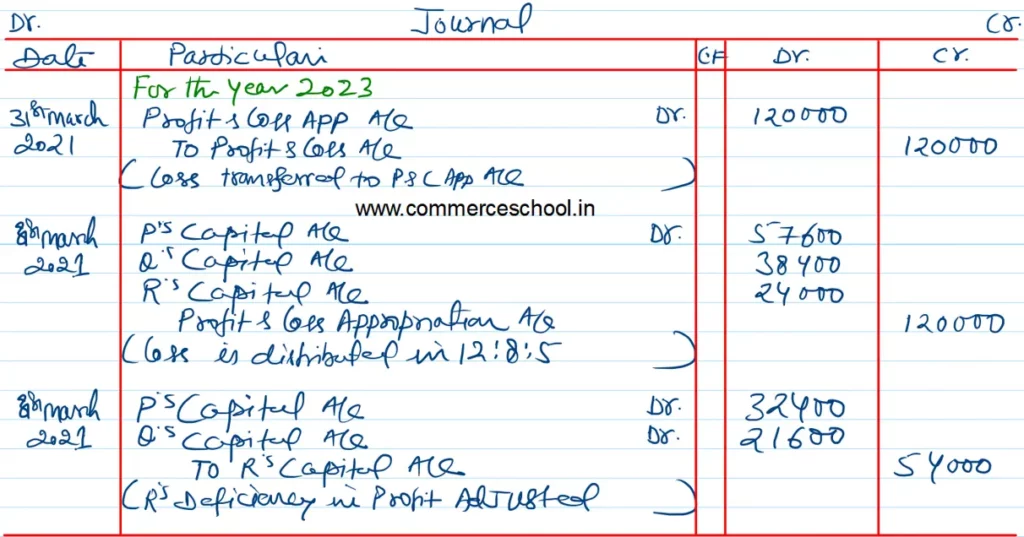 Dr. Journal Cr.
Date Particulars C.F Dr. Cr.
For the year 2023
31st March Profit & Loss App A/c Dr. 120000
2021 To Profit & Loss A/c 120000
(Loss transferred to P&L App A/c)
www.commerceschool.in
31st March P's Capital A/c Dr. 57600
2021 Q's Capital A/c 38400
R's Capital A/c 24000
Profit & Loss Appropriation A/c 120000
(Loss is distributed in 12:8:5)
31st March P's Capital A/c Dr. 32400
2021 Q's Capital A/c Dr. 21600
To R's Capital A/c 54000
(R's Deficiency in Profit Adjusted)